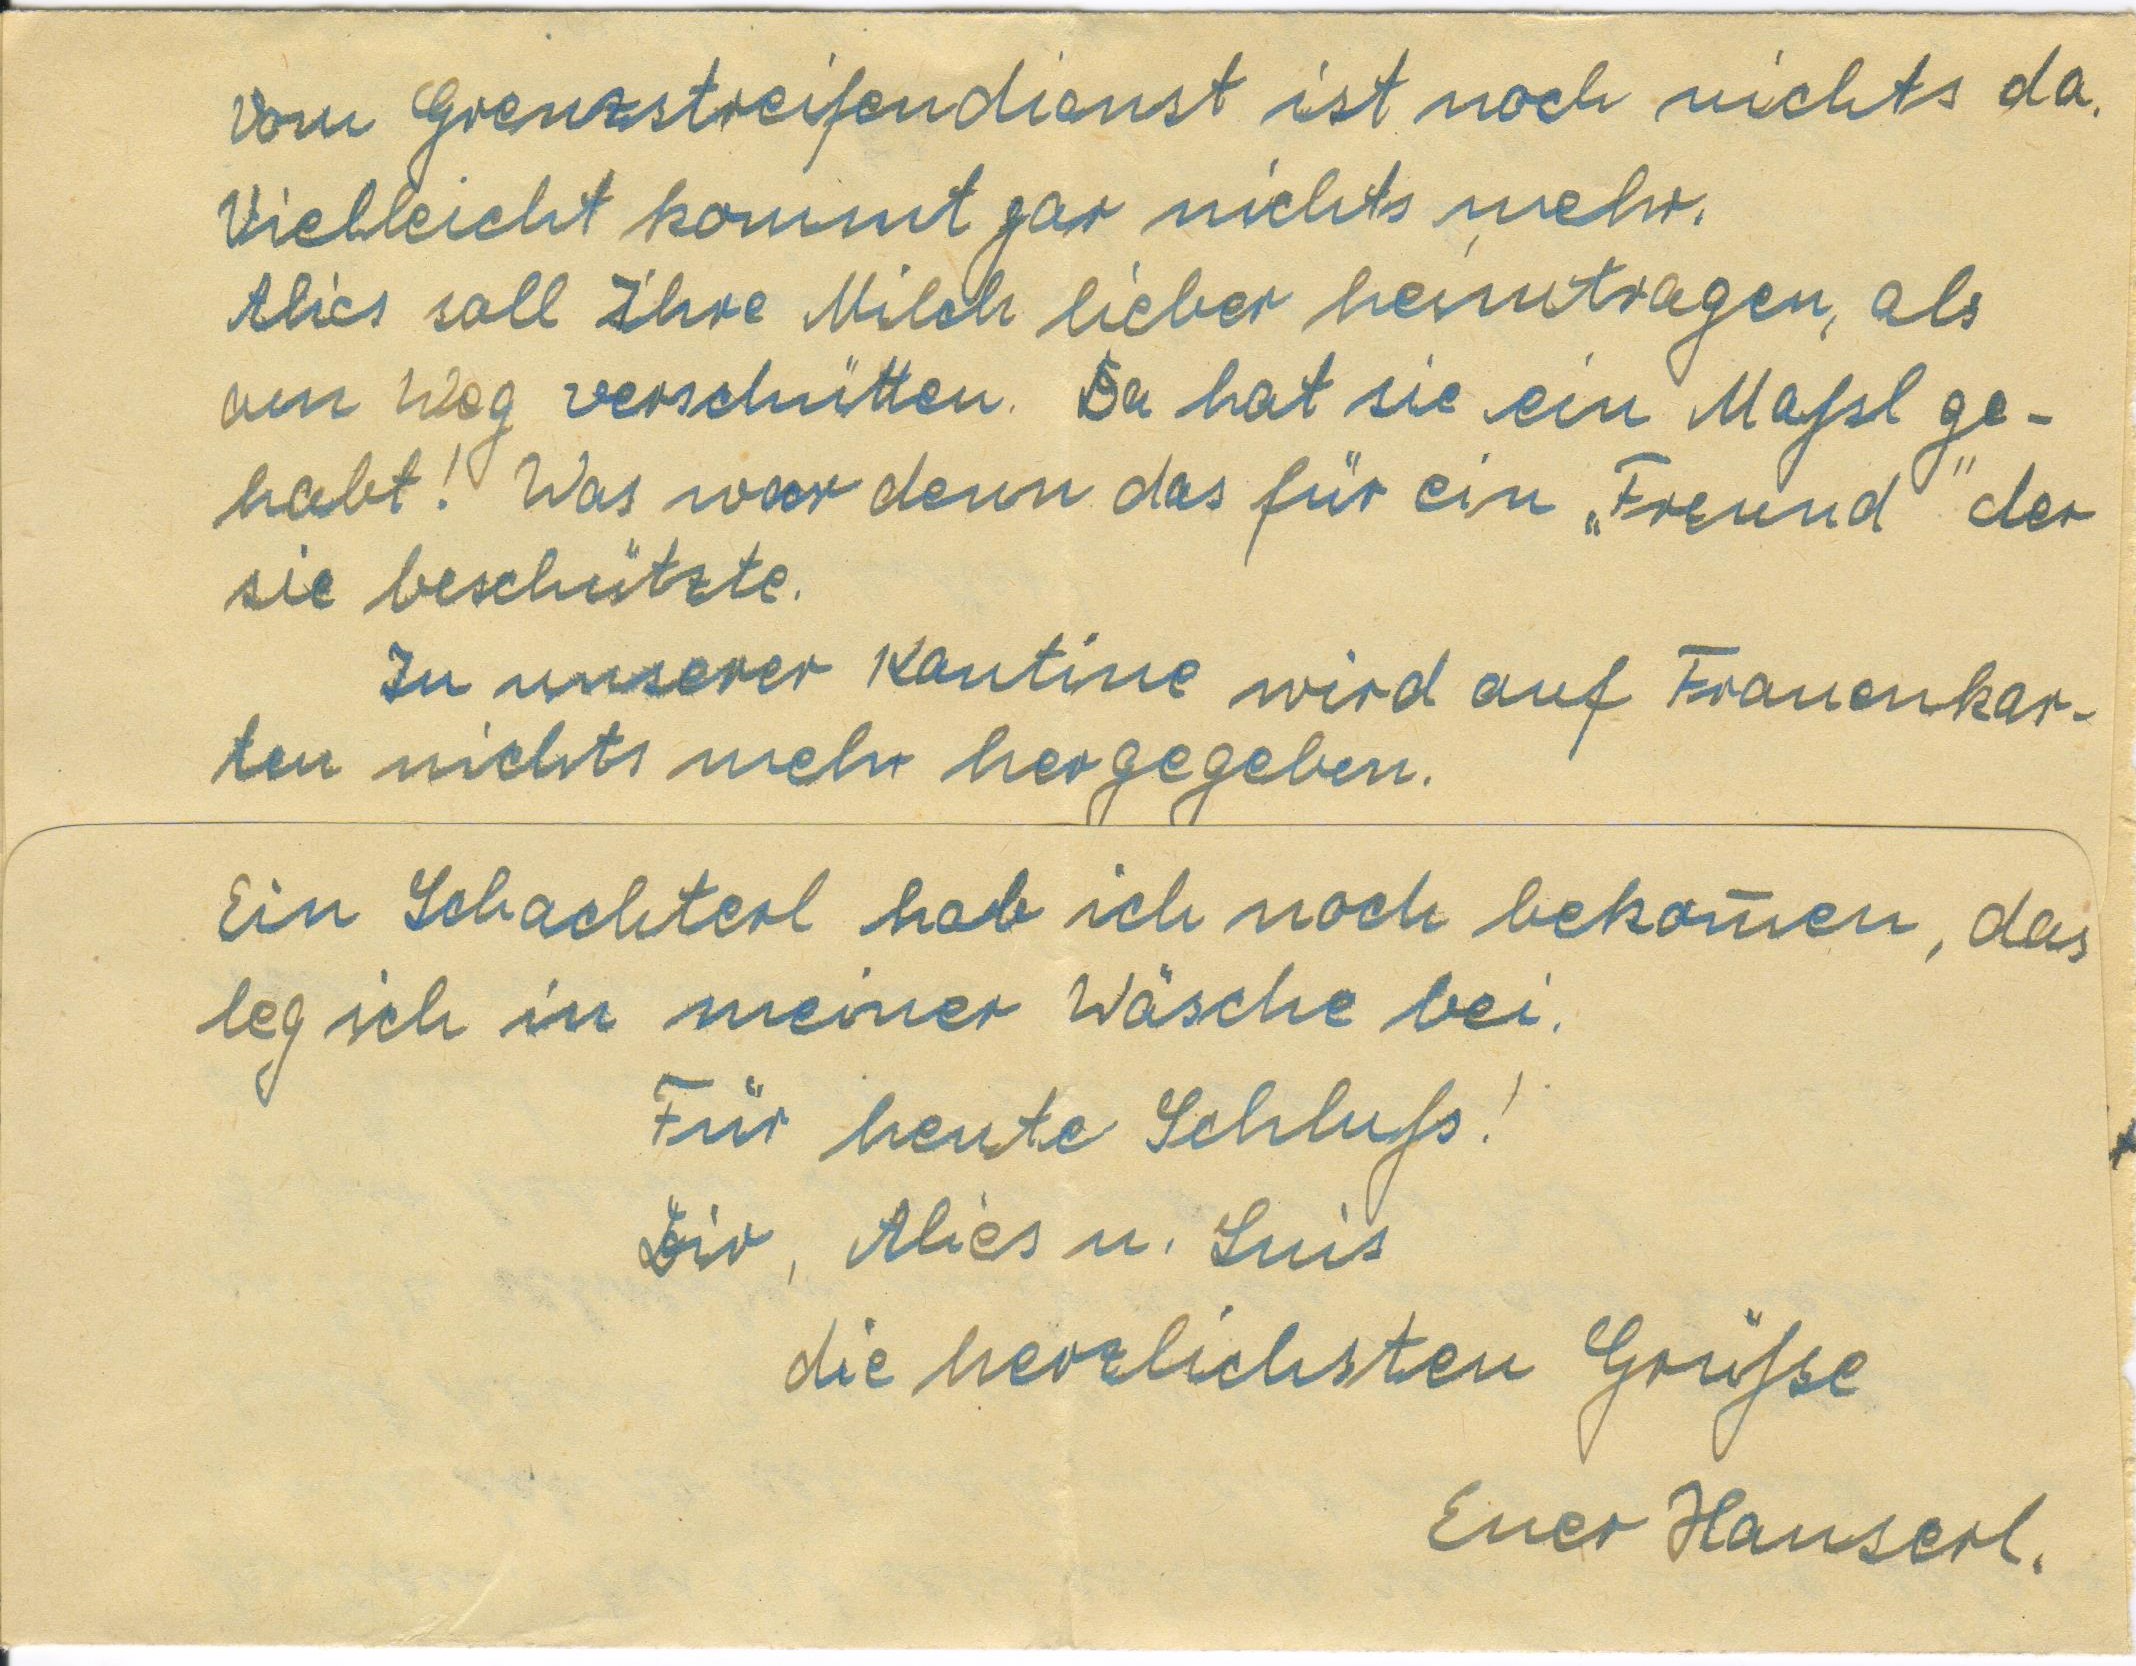 Vom Grenzstreifendienst ist noch nichts da.
Vielleicht kommt gar nichts mehr.
Alies soll Ihre Milch lieber heimtragen, als
am Weg verschütten. Da hat sie ein Maſsl ge-
habt! Was war denn das für ein „Freund" der
sie beschützte.
In unserer Kantine wird auf Frauenkar-
ten nichts mehr hergegeben.
Ein Schachterl hab ich noch bekom̄en, das
leg ich in meiner Wäsche bei.
Für heute Schluſs!
Dir, Alies u. Luis
die herzlichsten Grüſse
Euer Hanserl.